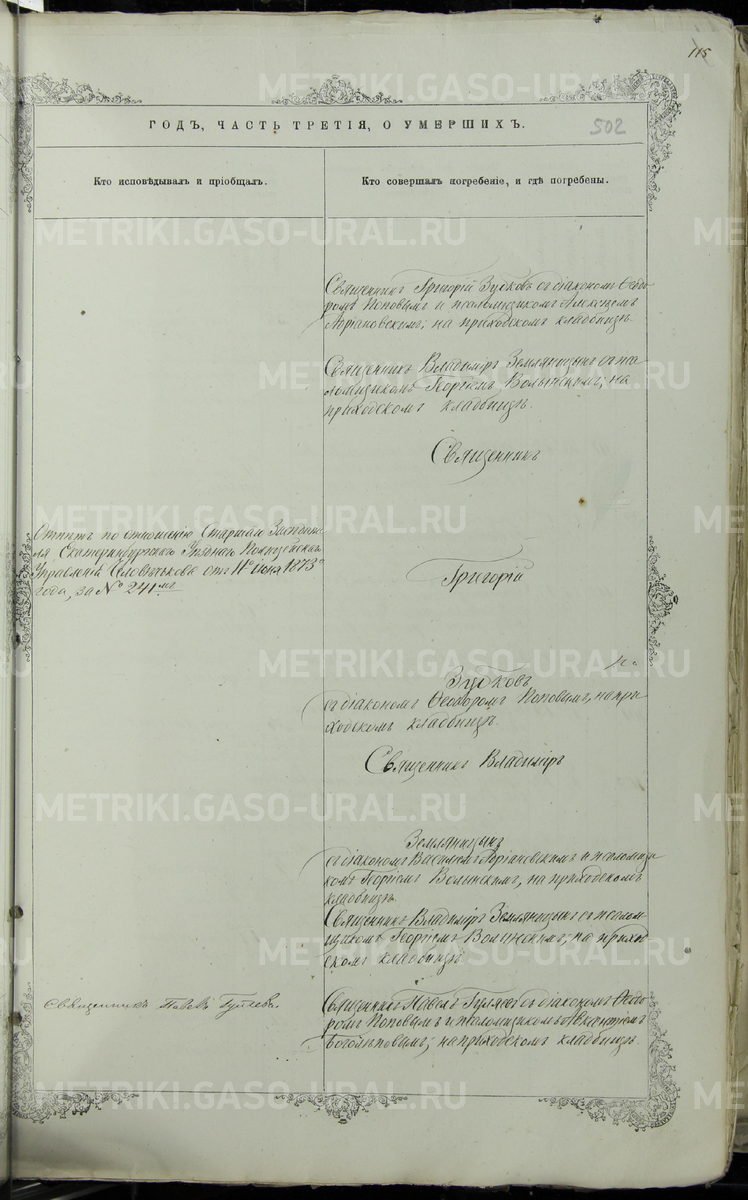 115
ГОДЪ, ЧАСТЬ ТРЕТІЯ, О УМЕРШИХЪ.
502
Кто исповѣдывалъ и пріобщалъ.
Кто совершалъ погребеніе, и гдѣ погребены.
METRIKI.GASO-URAL.RU
Священникъ Григорій Зубковъ съ діакономъ Ѳеодо-
ромъ Поповымъ и псаломщикомъ
на приходскомъ кладбищѣ.
Священникъ Владиміръ Земляницынъ съ пса-
ломщикомъ Георгіемъ Волынскимъ; на
приходскомъ кладбищѣ.
Священникъ
Отпѣтъ по отношенію Старшаго Засѣдате-
ля Екатеринбургскаго Уѣзднаго Полицейскаго
Управленія отъ 11го іюня 1873
года, за № 241мъ
Григорій
Зубковъ
съ діакономъ Ѳеодоромъ Поповымъ, на при-
ходскомъ кладбищѣ.
Священникъ Владиміръ
Земляницынъ
съ діакономъ Василіемъ и псаломщи-
комъ Георгіемъ Волынскимъ, на приходскомъ
кладбищѣ.
Священникъ Владиміръ Земляницынъ съ псалом-
щикомъ Георгіемъ Волынскимъ; на приход-
скомъ кладбищѣ.
Священникъ Павелъ Гуляевъ.
Священникъ Павелъ Гуляевъ съ діакономъ Ѳеодо-
ромъ Поповымъ и псаломщикомъ
Боголѣповымъ; на приходскомъ кладбищѣ.